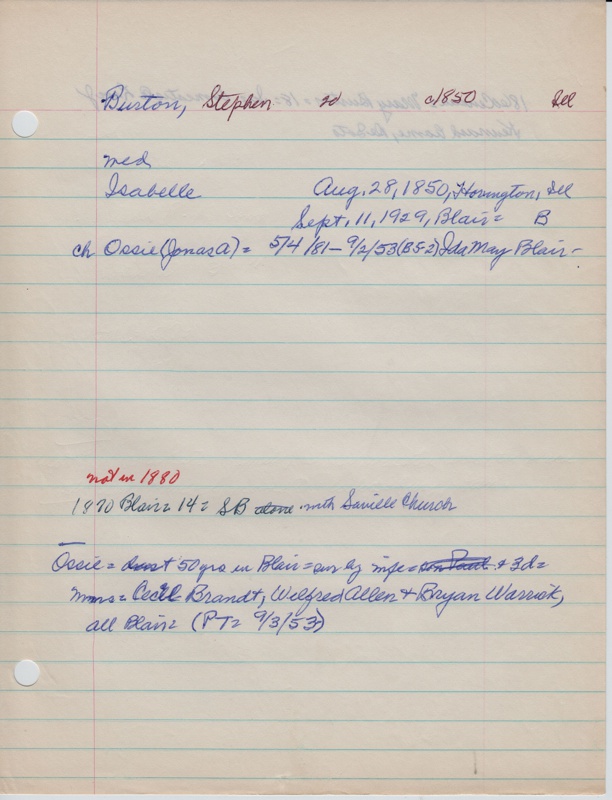 Burton, Stephen c1850 Ill
med
Isabelle Aug. 28, 1850, Ill
Sept. 11, 1929, Blair= B
ch Ossie (Jonas A) = 5/4/81 – 9/2/53 (B5-2) Ida May Blair –
not in 1880
1870 Blair= 14= SB with Church
Ossie = 50 yrs in Blair = sur by wife = + 3d=
Mmes= Cecil Brandt, Wilfred Allen + Bryan Warrick,
all Blair= (PT= 9/3/53)